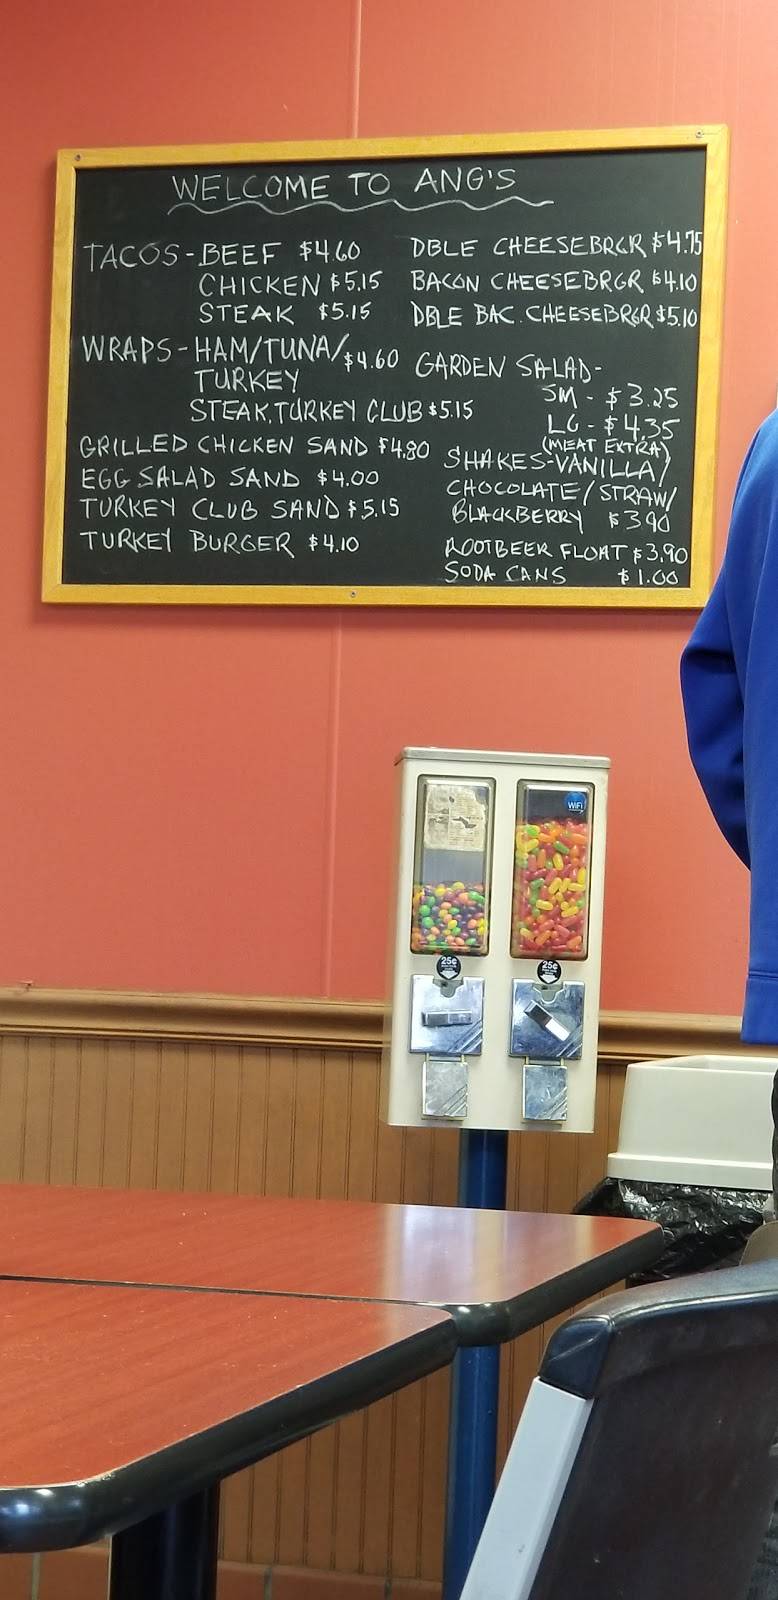 WELCOME TO ANG'S
TACOS - BEEF $4.60
CHICKEN $5.15
STEAK $5.15
WRAPS - HAM/TUNA/ $4.60
TURKEY
STEAK, TURKEY CLUB $5.15
GRILLED CHICKEN SAND $4.80
EGG SALAD SAND $4.00
TURKEY CLUB SAND $5.15
TURKEY BURGER $4.10
DBLE CHEESEBRGR $4.75
BACON CHEESEBRGR $4.10
DBLE BAC. CHEESEBRGR $5.10
GARDEN SALAD -
SM - $3.25
LG - $4.35
(MEAT EXTRA)
SHAKES - VANILLA/
CHOCOLATE/STRAW/
BLACKBERRY $3.90
ROOTBEER FLOAT $3.90
SODA CANS $1.00
WiFi
25¢
25¢